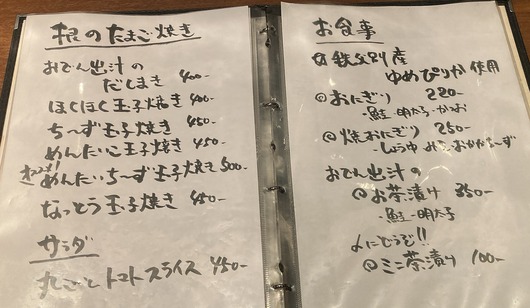 根のたまご焼き
おでん出汁の
だしまき 400-
ほくほく玉子焼き 400-
ち〜ず玉子焼き 450-
めんたいこ玉子焼き 450-
めんたいち〜ず玉子焼き 500-
なっとう玉子焼き 450-
サラダ
丸ごとトマトスライス 450-
お食事
秩父別産
ゆめぴりか使用
◎おにぎり 220-
・鮭・明太子・かつお
◎焼おにぎり 250-
・しょうゆ・みそ・おかかち〜ず
おでん出汁の
◎お茶漬け 350-
・鮭・明太子
〆にどうぞ!!
◎ミニ茶漬け 100-